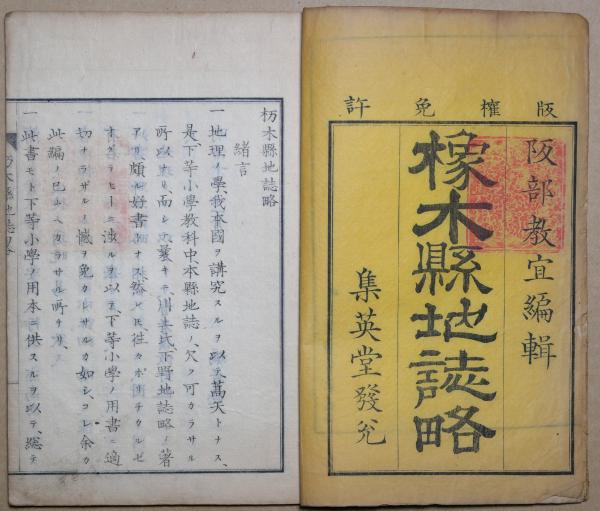 版權免許
阪部教宜編輯
橡木縣地誌略
集英堂發兌
杤木縣地誌略
緒言
一地理ノ學我本國ヲ講究スルヲ以テ萬矢トナス、
是下等小學教科中本縣地誌ノ欠ク可カラサル
所以ナリ、而シテ曩キニ川上氏下野地誌略ノ著
アリ頗ル好書トナス然レ𪜈往
ニ渉ルヲ以テ下等小學ノ用書ニ適
切ナラザルノ憾ヲ免カレサルカ如シコレ余カ
此編ノ已ムヘカラサル所ナリ、
一此書モト下等小學ノ用本ニ供スルヲ以テ、総テ